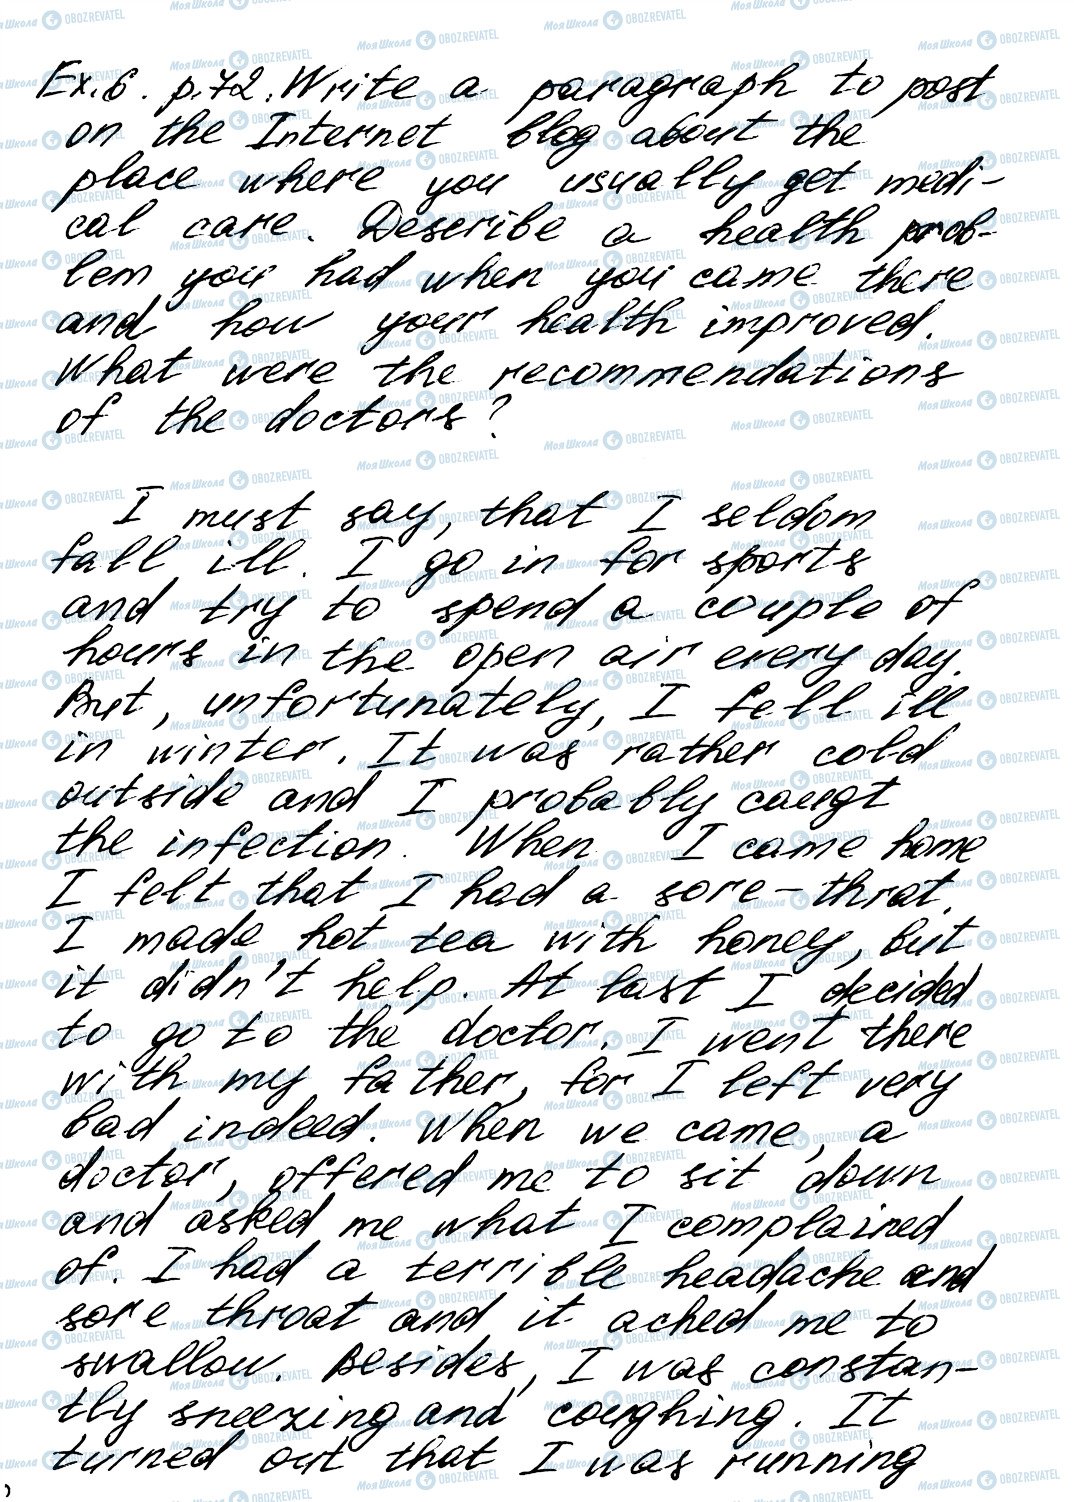 Ex.6. p.72. Write a paragraph to post
on the Internet blog about the
place where you usually get medi-
cal care. Describe a health prob-
lem you had when you came there
and how your health improved.
What were the recommendations
of the doctors?
I must say, that I seldom
fall ill. I go in for sports
and try to spend a couple of
hours in the open air every day.
But, unfortunately, I fell ill
in winter. It was rather cold
outside and I probably caugt
the infection. When I came home
I felt that I had a sore-thrat.
I made hot tea with honey, but
it didn't help. At last I decided
to go to the doctor. I went there
with my father, for I left very
bad indeed. When we came, a
doctor, offered me to sit down
and asked me what I complained
of. I had a terrible headache and
sore throat and it ached me to
swallow. Besides, I was constan-
tly sneezing and coughing. It
turned out that I was running